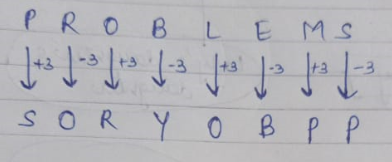 P R O B L E M S
+3 -3 +3 -3 +3 -3 +3 -3
S O R Y O B P P